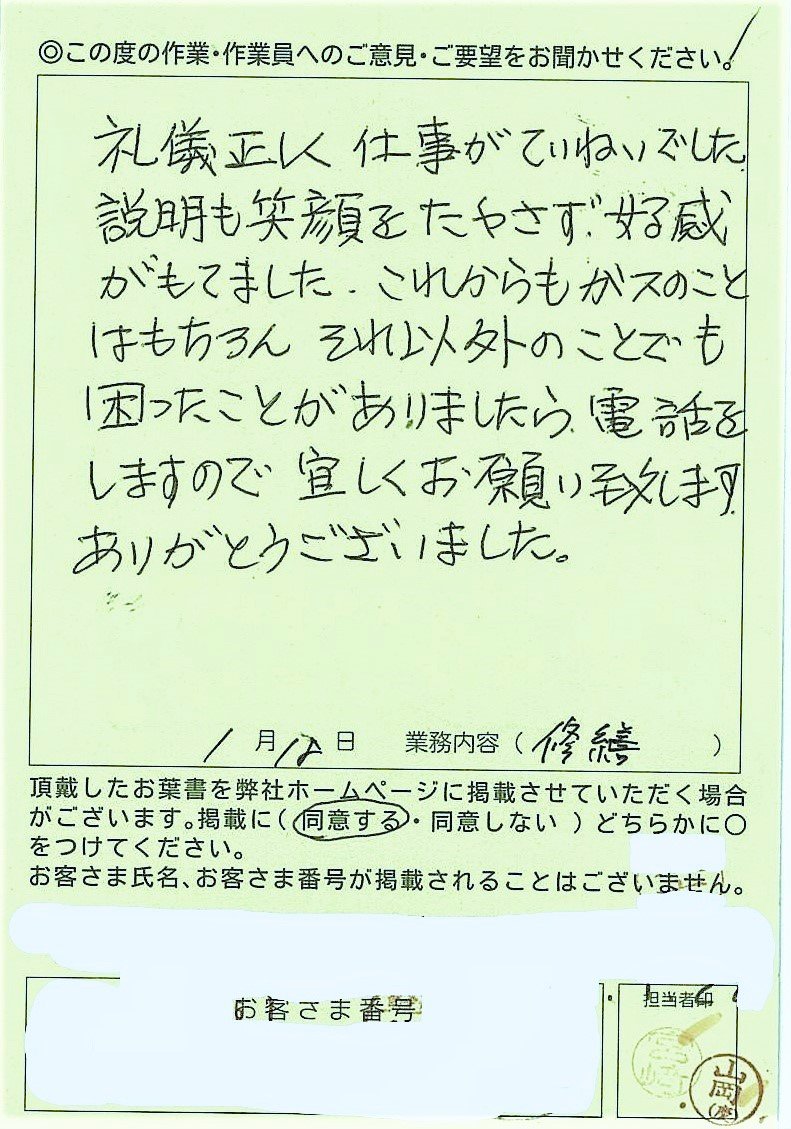 ◎この度の作業・作業員へのご意見・ご要望をお聞かせください。
礼儀正しく 仕事がていねいでした
説明も笑顔をたやさず、好感
がもてました. これからもガスのこと
はもちろん それ以外のことでも
困ったことがありましたら、電話を
しますので 宜しくお願い致します
ありがとうございました。
1月12日 業務内容（修繕）
頂戴したお葉書を弊社ホームページに掲載させていただく場合
がございます。掲載に（同意する・同意しない）どちらかに○
をつけてください。
お客さま氏名、お客さま番号が掲載されることはございません。
お客さま番号
担当者印
山岡